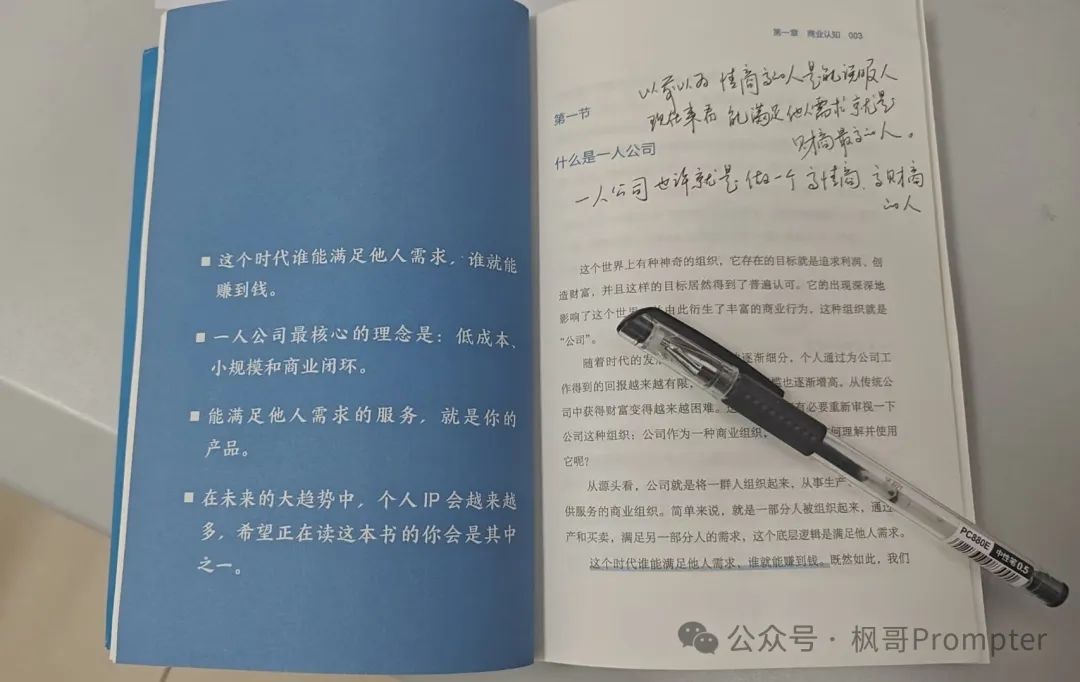 ■ 这个时代谁能满足他人需求，谁就能
赚到钱。
■ 一人公司最核心的理念是：低成本、
小规模和商业闭环。
■ 能满足他人需求的服务，就是你的
产品。
■ 在未来的大趋势中，个人 IP 会越来越
多，希望正在读这本书的你会是其中
之一。
第一章 商业认知 003
以前以为 情商高的人是能说服人
现在来看 能满足他人需求就是
财商最高的人。
第一节
什么是一人公司
一人公司也许就是做一个高情商、高财商
的人
这个世界上有种神奇的组织，它存在的目标就是追求利润、创
造财富，并且这样的目标居然得到了普遍认可。它的出现深深地
影响了这个世界 由此衍生了丰富的商业行为，这种组织就是
“公司”。
随着时代的发 逐渐细分，个人通过为公司工
作得到的回报越来越有限， 也逐渐增高。从传统公
司中获得财富变得越来越困难。 有必要重新审视一下
公司这种组织：公司作为一种商业组织， 何理解并使用
它呢？
从源头看，公司就是将一群人组织起来，从事生产、
供服务的商业组织。简单来说，就是一部分人被组织起来，通过
产和买卖，满足另一部分人的需求，这个底层逻辑是满足他人需求。
这个时代谁能满足他人需求，谁就能赚到钱。既然如此，我们
PC880E 中性笔0.5
公众号 · 枫哥Prompter